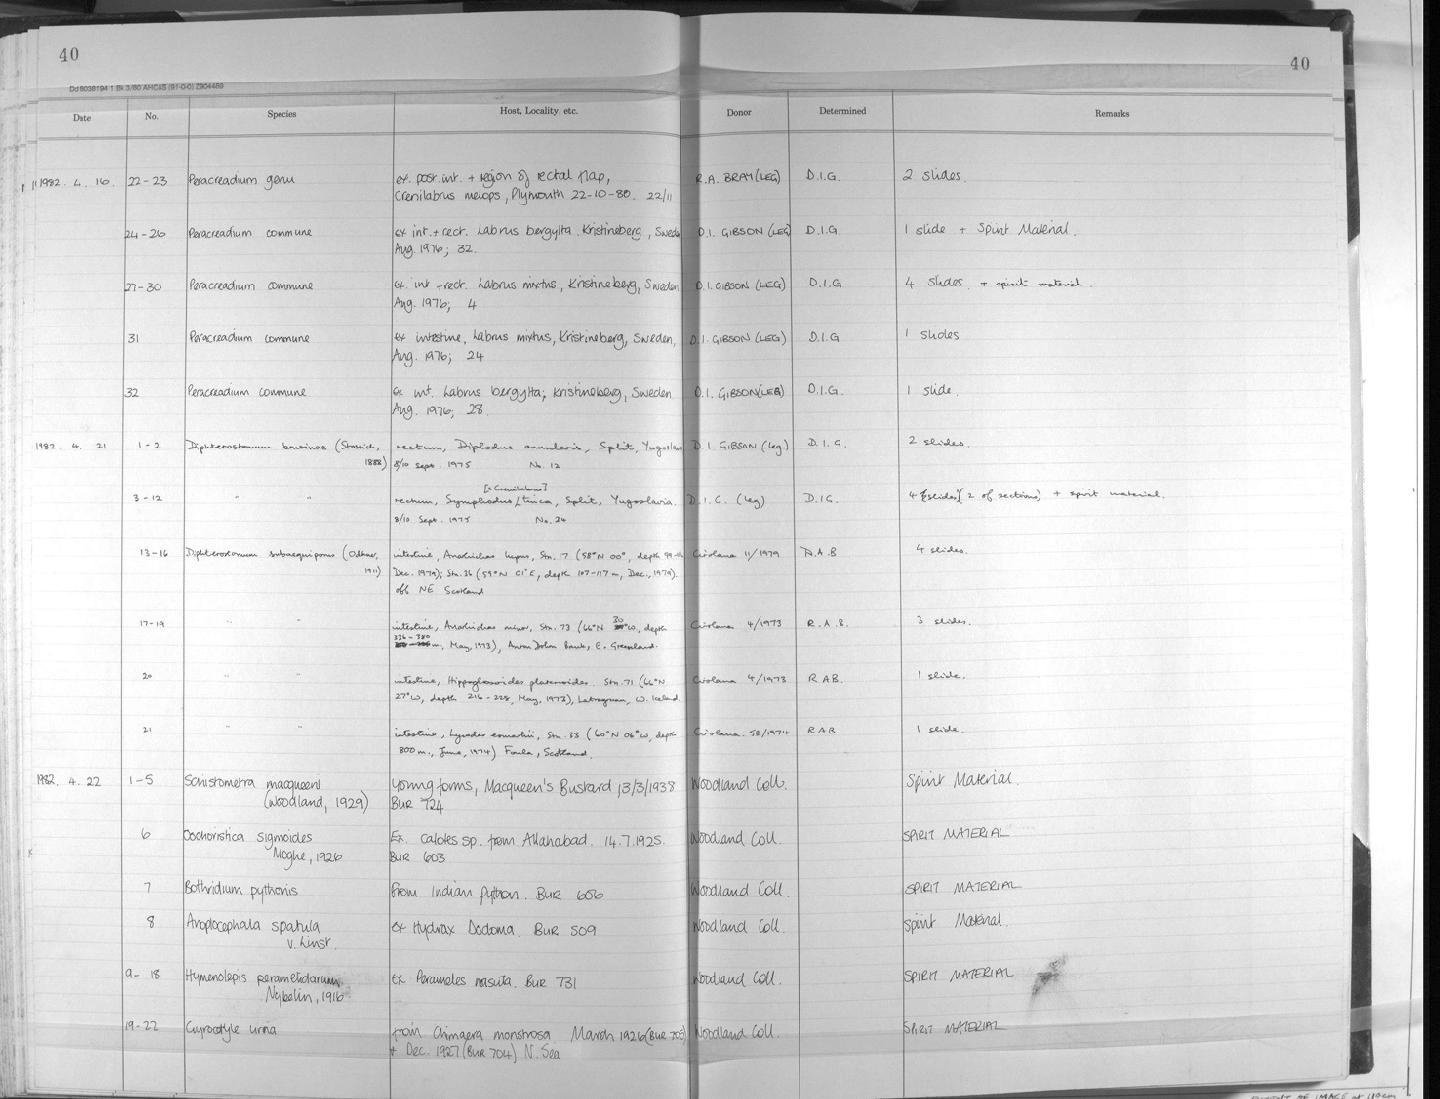 40
40
Dd 8038194 1 Bk 3/80 AHC&S (91-0-0) Z904489
Date No. Species Host, Locality etc. Donor Determined Remarks
1982. 4. 16. 22-23 Peracreadium genu ex. post. int. + region of rectal flap, R.A. BRAY (LEG) D.I.G. 2 slides.
Crenilabrus melops, Plymouth 22-10-80. 22/11
24-26 Peracreadium commune ex int. + rect. Labrus bergylta. Kristineberg, Sweden D.I. GIBSON (LEG) D.I.G 1 slide + Spirit Material.
Aug. 1976; 32.
27-30 Peracreadium commune ex. int + rect. Labrus mixtus, Kristineberg, Sweden D.I. GIBSON (LEG) D.I.G 4 slides. + spirit material.
Aug. 1976; 4
31 Peracreadium commune ex intestine, Labrus mixtus, Kristineberg, Sweden, D.I. GIBSON (LEG) D.I.G 1 slides
Aug. 1976; 24
32 Peracreadium commune ex int. Labrus bergylta; Kristineberg, Sweden D.I. GIBSON (LEG) D.I.G. 1 slide.
Aug. 1976; 28.
1982 4. 21 1-2 Diphterostomum brusinae (Stossich, rectum, Diplodus annularis, Split, Yugoslavia D.I. GIBSON (leg) D.I.G. 2 slides.
1888) 8/10 Sept. 1975 No. 12
3-12 " " rectum, Symphodus tinca, Split, Yugoslavia. D.I.G. (leg) D.I.G. 4 [slides] [2 of sections] + spirit material.
8/10 Sept. 1975 No. 24
13-16 Diphterostomum subaequiporus (Odhner, intestine, Anarhichas lupus, Stn. 7 (58°N 00°, depth Cirolana 11/1979 R.A.B 4 slides.
1911) Dec. 1979); Stn. 36 (59°N 01°E, depth 107-117m, Dec., 1979).
off NE Scotland
17-19 " " intestine, Anarhichas minor, Stn. 73 (66°N 30°W, depth Cirolana 4/1973 R.A.B. 3 slides.
336-380 m, May, 1973), Anton Dohrn Bank, E. Greenland.
20 " " intestine, Hippoglossoides platessoides. Stn. 71 (66°N Cirolana 4/1973 R AB. 1 slide.
27°W, depth 216-228, May, 1973), Latragrunn, W. Iceland.
21 " " intestine, Lycodes esmarkii, Stn. 53 (60°N 06°W, depth Cirolana. R A B 1 slide.
800 m., June, 1974) Foula, Scotland.
1982. 4. 22 1-5 Schistometra macqueeni Young forms, Macqueen's Bustard, 13/3/1938 Woodland Coll. Spirit Material.
(Woodland, 1929) BUR 724
6 Oochoristica sigmoides Ex. Calotes sp. from Allahabad. 14.7.1925. Woodland Coll. SPIRIT MATERIAL
Moghe, 1926 BUR 603
7 Bothridium pythonis From Indian python. BUR 606 Woodland Coll. SPIRIT MATERIAL
8 Anoplocephala spatula ex Hydrax Dodoma. BUR 509 Woodland Coll. Spirit Material.
v. Linst.
9- 18 Hymenolepis peramelidarum Ex Perameles nasuta. BUR 731 Woodland Coll. SPIRIT MATERIAL
Nybelin, 1916
19-22 Gyrocotyle urna from Chimaera monstrosa March 1926 (BUR 705) Woodland Coll. SPIRIT MATERIAL
+ Dec. 1927 (BUR 704) N. Sea